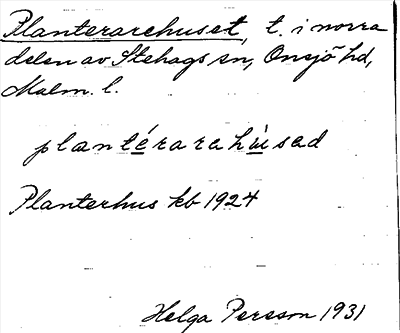 Planterarehuset, t. i norra
delen av Stehags sn, Onsjö hd,
Malm. l.
plantérarahùsad
Planterhus kb 1924
Helga Persson 1931